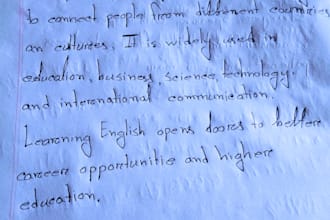 to connect people from different countries
an cultures. It is widely used in
education, business, science, technology.
and international communication.
Learning English opens doores to bettere
career opportunitie and highere
education.